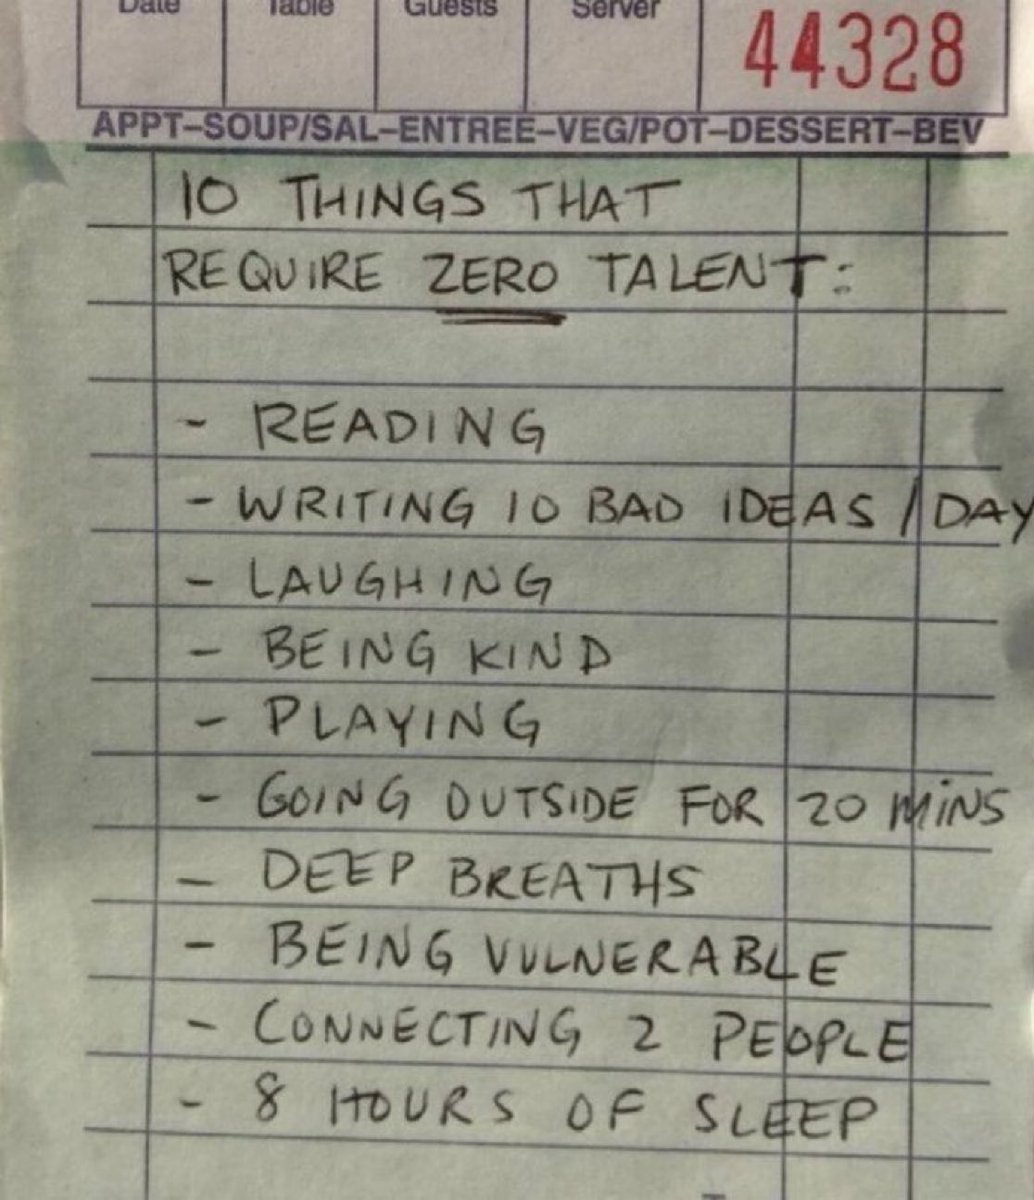 Date Table Guests Server
44328
APPT–SOUP/SAL–ENTREE–VEG/POT–DESSERT–BEV
10 THINGS THAT
REQUIRE ZERO TALENT:
- READING
- WRITING 10 BAD IDEAS / DAY
- LAUGHING
- BEING KIND
- PLAYING
- GOING OUTSIDE FOR 20 MINS
- DEEP BREATHS
- BEING VULNERABLE
- CONNECTING 2 PEOPLE
- 8 HOURS OF SLEEP